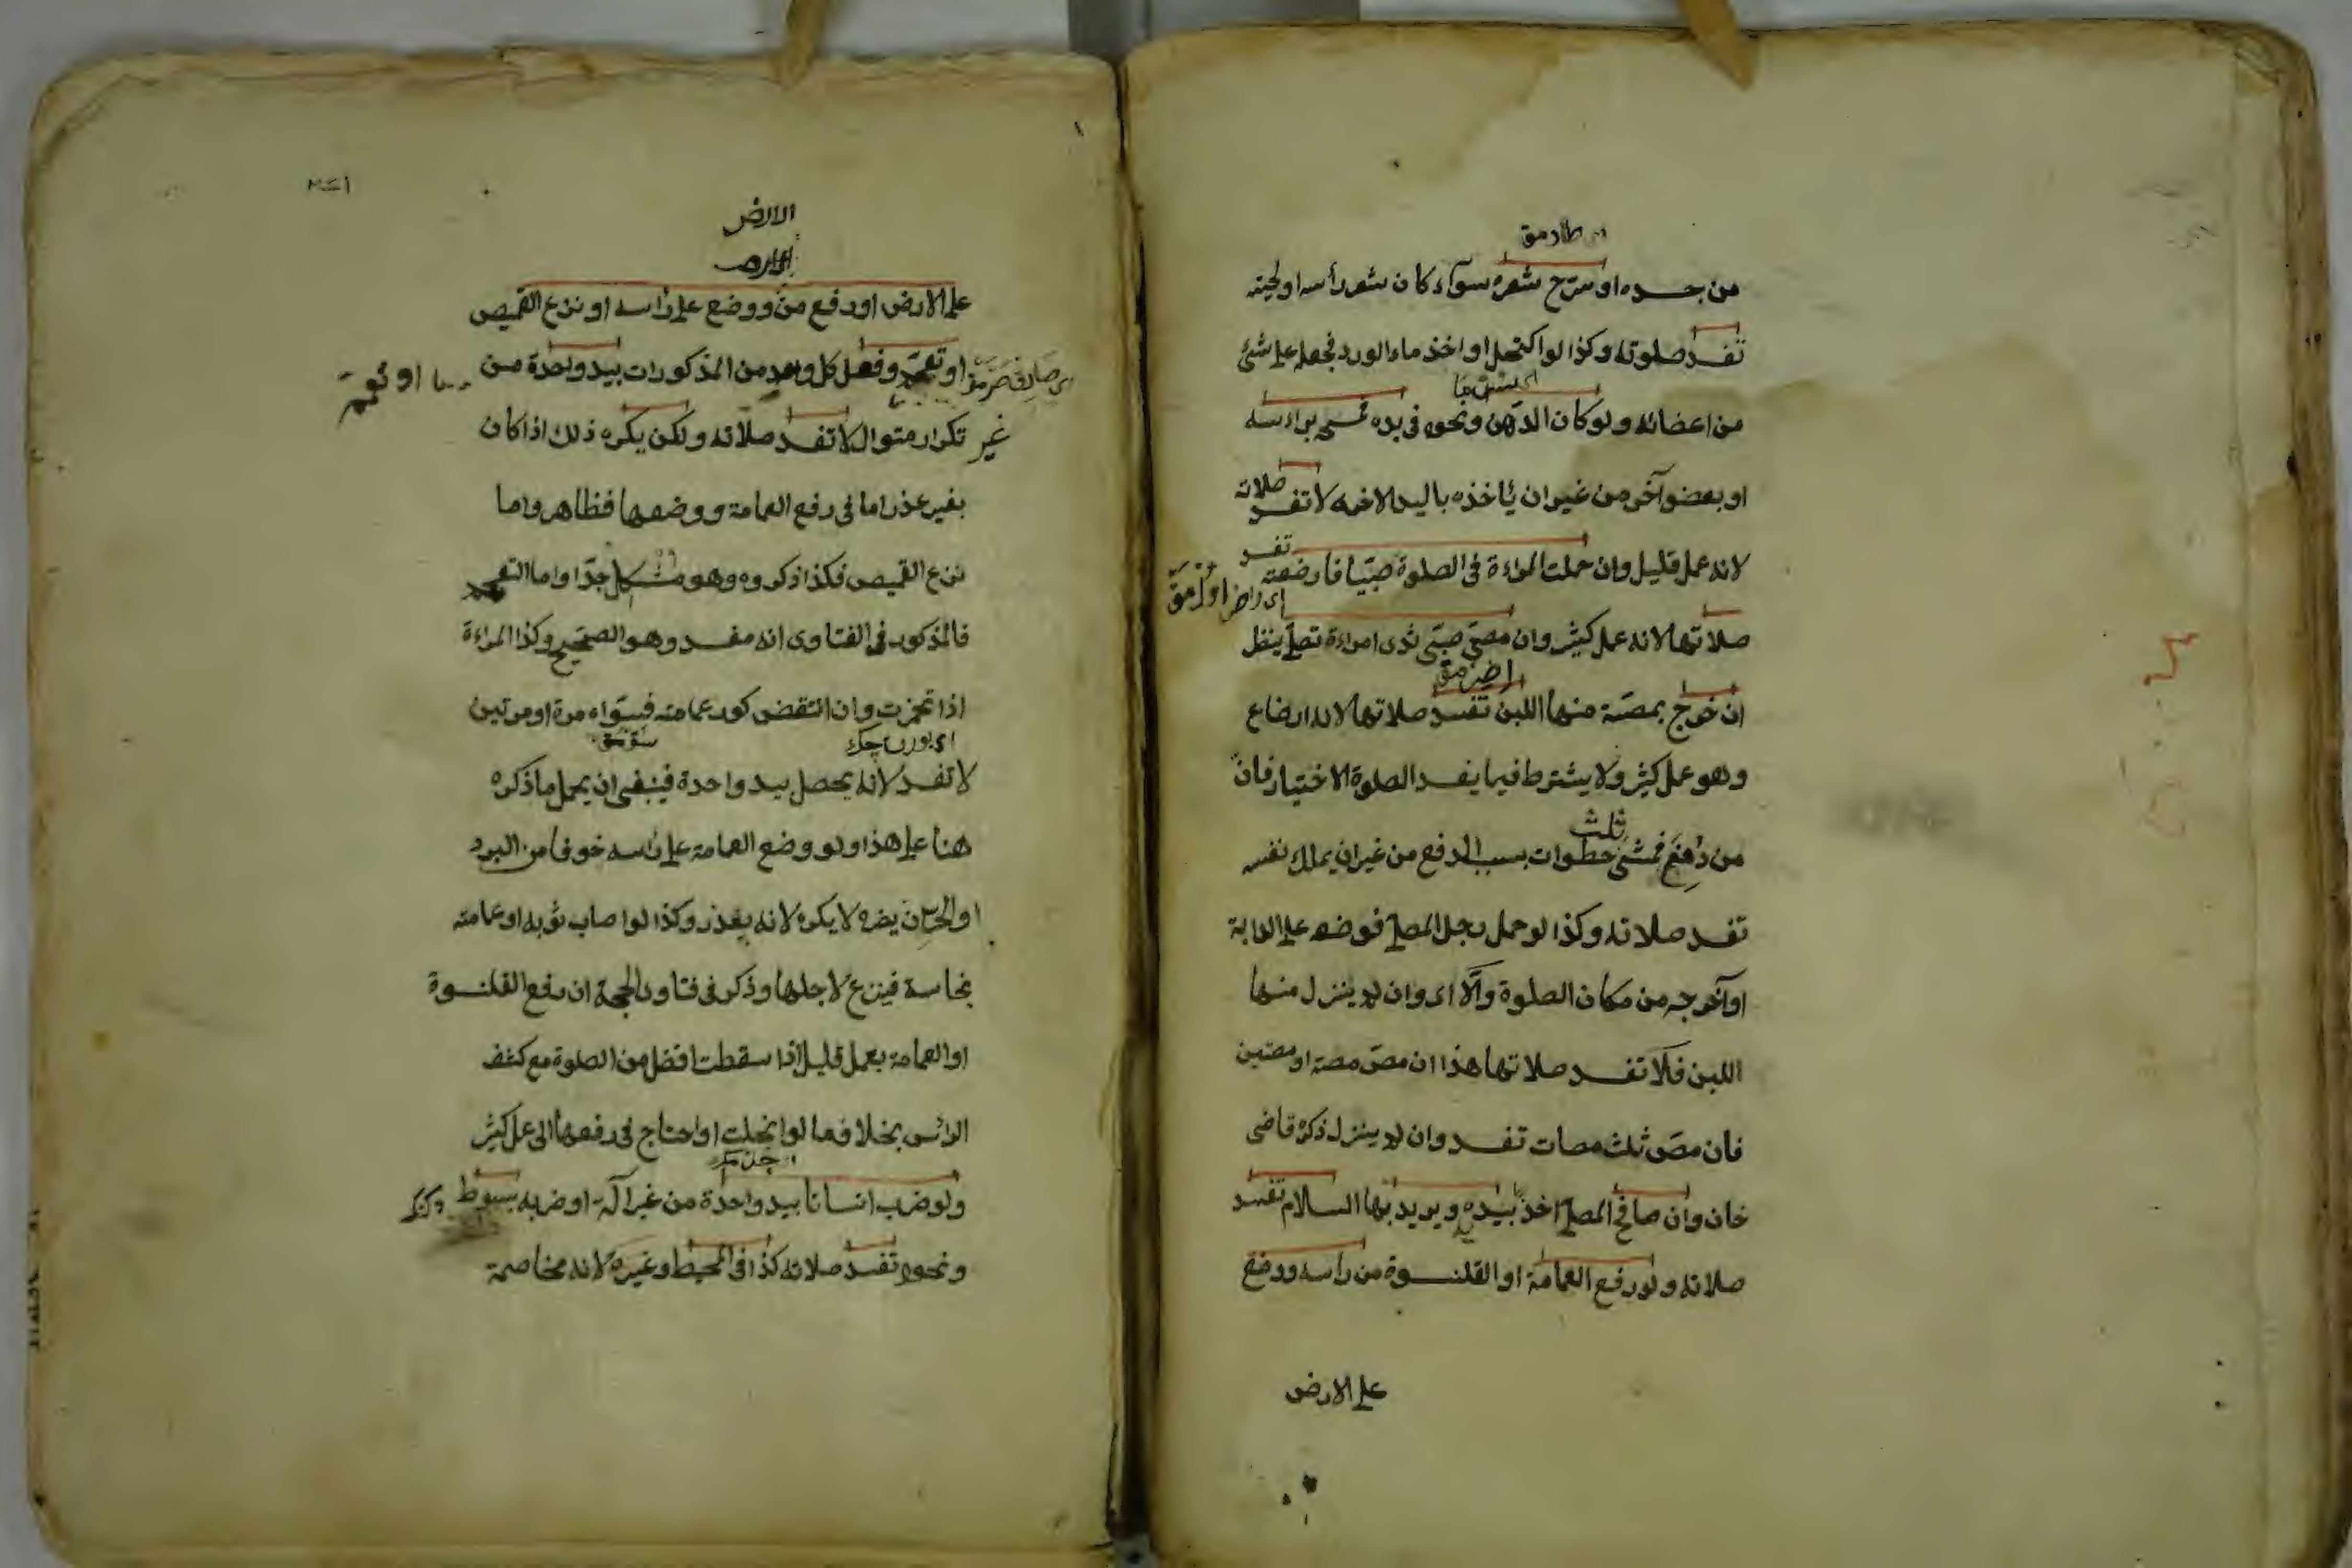 طارمق
من جسده او سرح شعره سوآء كان شعر رأسه او لحيته
تفسد صلوته وكذا لو اكتحل او اخذ ماء الورد فجعله على شئ
من اعضائه ولو كان الدهن ونحوه فى يده فمسح برأسه
او بعضو آخر من غير ان يأخذه باليد الاخرى لا تفسد صلاته
لانه عمل قليل وان حملت المراءة فى الصلوة صبيا فارضعته تفسد
صلاتها لانه عمل كثير وان مصّ صبىّ ثدى امراءة تصلى ينظر
ان خرج بمصّه منها اللبن تفسد صلاتها لانه ارضاع
وهو عمل كثير ولا يشترط فيما يفسد الصلوة الاختيار فان
من دُفِعَ فمشى ثلث خطوات بسبب الدفع من غير ان يملك نفسه
تفسد صلاته وكذا لو حمل رجل المصلى فوضعه على الدابة
او آخرجه من مكان الصلوة والّا اى وان لم ينزل منها
اللبن فلا تفسد صلاتها هذا ان مصّ مصة او مصتين
فان مصّ ثلث مصات تفسد وان لم ينزل ذكره قاضى
خان وان صافح المصلى اخذ بيده ويريد بها السلام تفسد
صلاته ولو رفع العمامة او القلنسوة من رأسه ووضع
على الارض
الارض
على الارض او رفع من ووضع على رأسه او نزع القميص
او تعمم وفعل كل واحد من المذكورات بيد واحدة من
غير تكرار متوال لا تفسد صلاته ولكن يكره ذلك اذا كان
بغير عذر اما فى رفع العمامة ووضعها فظاهر واما
نزع القميص فكذا ذكروه وهو مشكل جدّا واما التعمم
فالمذكور فى الفتاوى انه مفسد وهو الصحيح وكذا المراءة
اذا تخمرت وان انتقض كور عمامته فسوّاه مرة او مرتين
لا تفسد لانه يحصل بيد واحدة فينبغى ان يحمل ما ذكره
هنا على هذا ولو وضع العمامة على رأسه خوفا من البرد
او الحر ان يضره لا يكره لانه بعذر وكذا لو اصاب ثوبه او عمامته
نجاسة فينزع لاجلها وذكر فى فتاوى الحجة ان رفع القلنسوة
او العمامة بعمل قليل اذا سقطت افضل من الصلوة مع كشف
الرأس بخلاف ما لو انحلت او احتاج فى رفعها الى عمل كثير
ولو ضرب انسانا بيد واحدة من غير آلة او ضربه بسوط
ونحوه تفسد صلاته كذا فى المحيط وغيره لانه مخاصمة